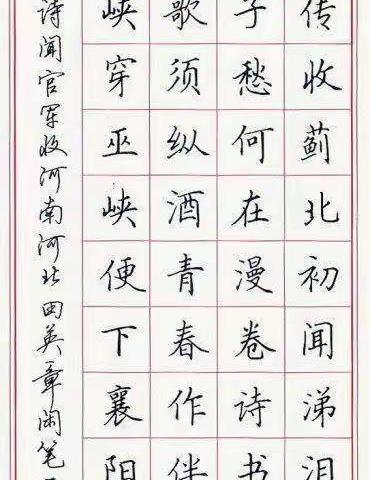 传收蓟北初闻涕泪
子愁何在漫卷诗书
歌须纵酒青春作伴
峡穿巫峡便下襄阳
诗闻官军收河南河北田英章闲笔